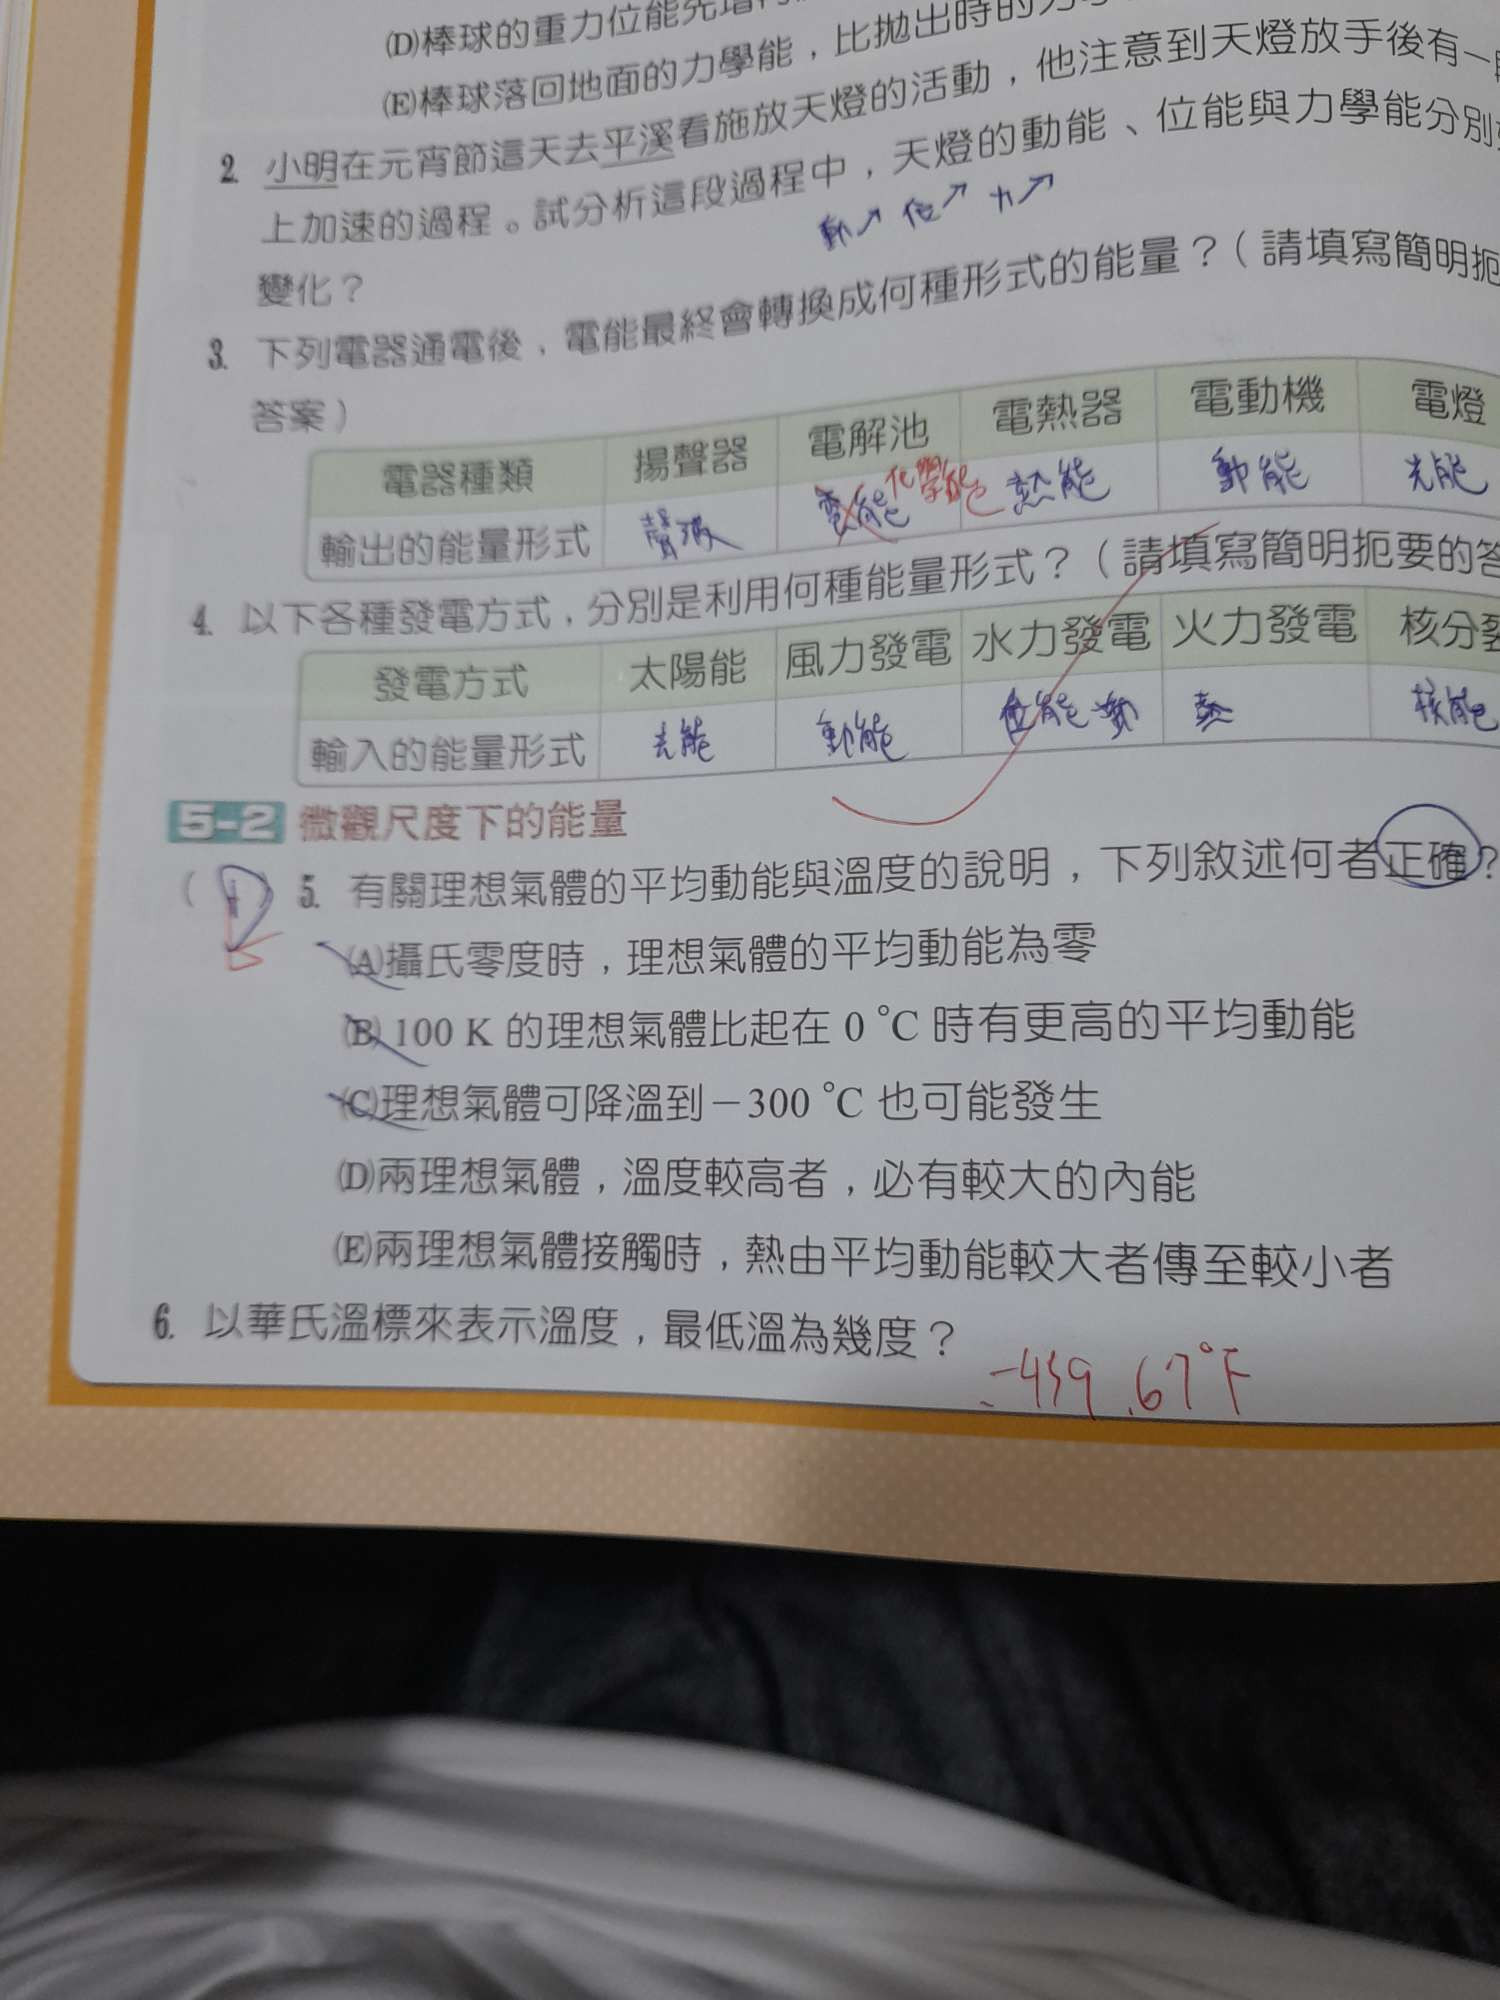 (D)棒球的重力位能先增
(E)棒球落回地面的力學能，比拋出時的力學
2. 小明在元宵節這天去平溪看施放天燈的活動，他注意到天燈放手後有一
上加速的過程。試分析這段過程中，天燈的動能、位能與力學能分別
變化？
動↗ 位↗ 力↗
3. 下列電器通電後，電能最終會轉換成何種形式的能量？（請填寫簡明扼
答案）
電器種類 揚聲器 電解池 電熱器 電動機 電燈
輸出的能量形式 聲波 電能 化學能 熱能 動能 光能
4. 以下各種發電方式，分別是利用何種能量形式？（請填寫簡明扼要的答
發電方式 太陽能 風力發電 水力發電 火力發電 核分裂
輸入的能量形式 光能 動能 位能 動 熱 核能
5-2 微觀尺度下的能量
( D ) 5. 有關理想氣體的平均動能與溫度的說明，下列敘述何者正確？
E
(A)攝氏零度時，理想氣體的平均動能為零
(B) 100 K 的理想氣體比起在 0 ℃ 時有更高的平均動能
(C)理想氣體可降溫到－300 ℃ 也可能發生
(D)兩理想氣體，溫度較高者，必有較大的內能
(E)兩理想氣體接觸時，熱由平均動能較大者傳至較小者
6. 以華氏溫標來表示溫度，最低溫為幾度？
-459.67°F